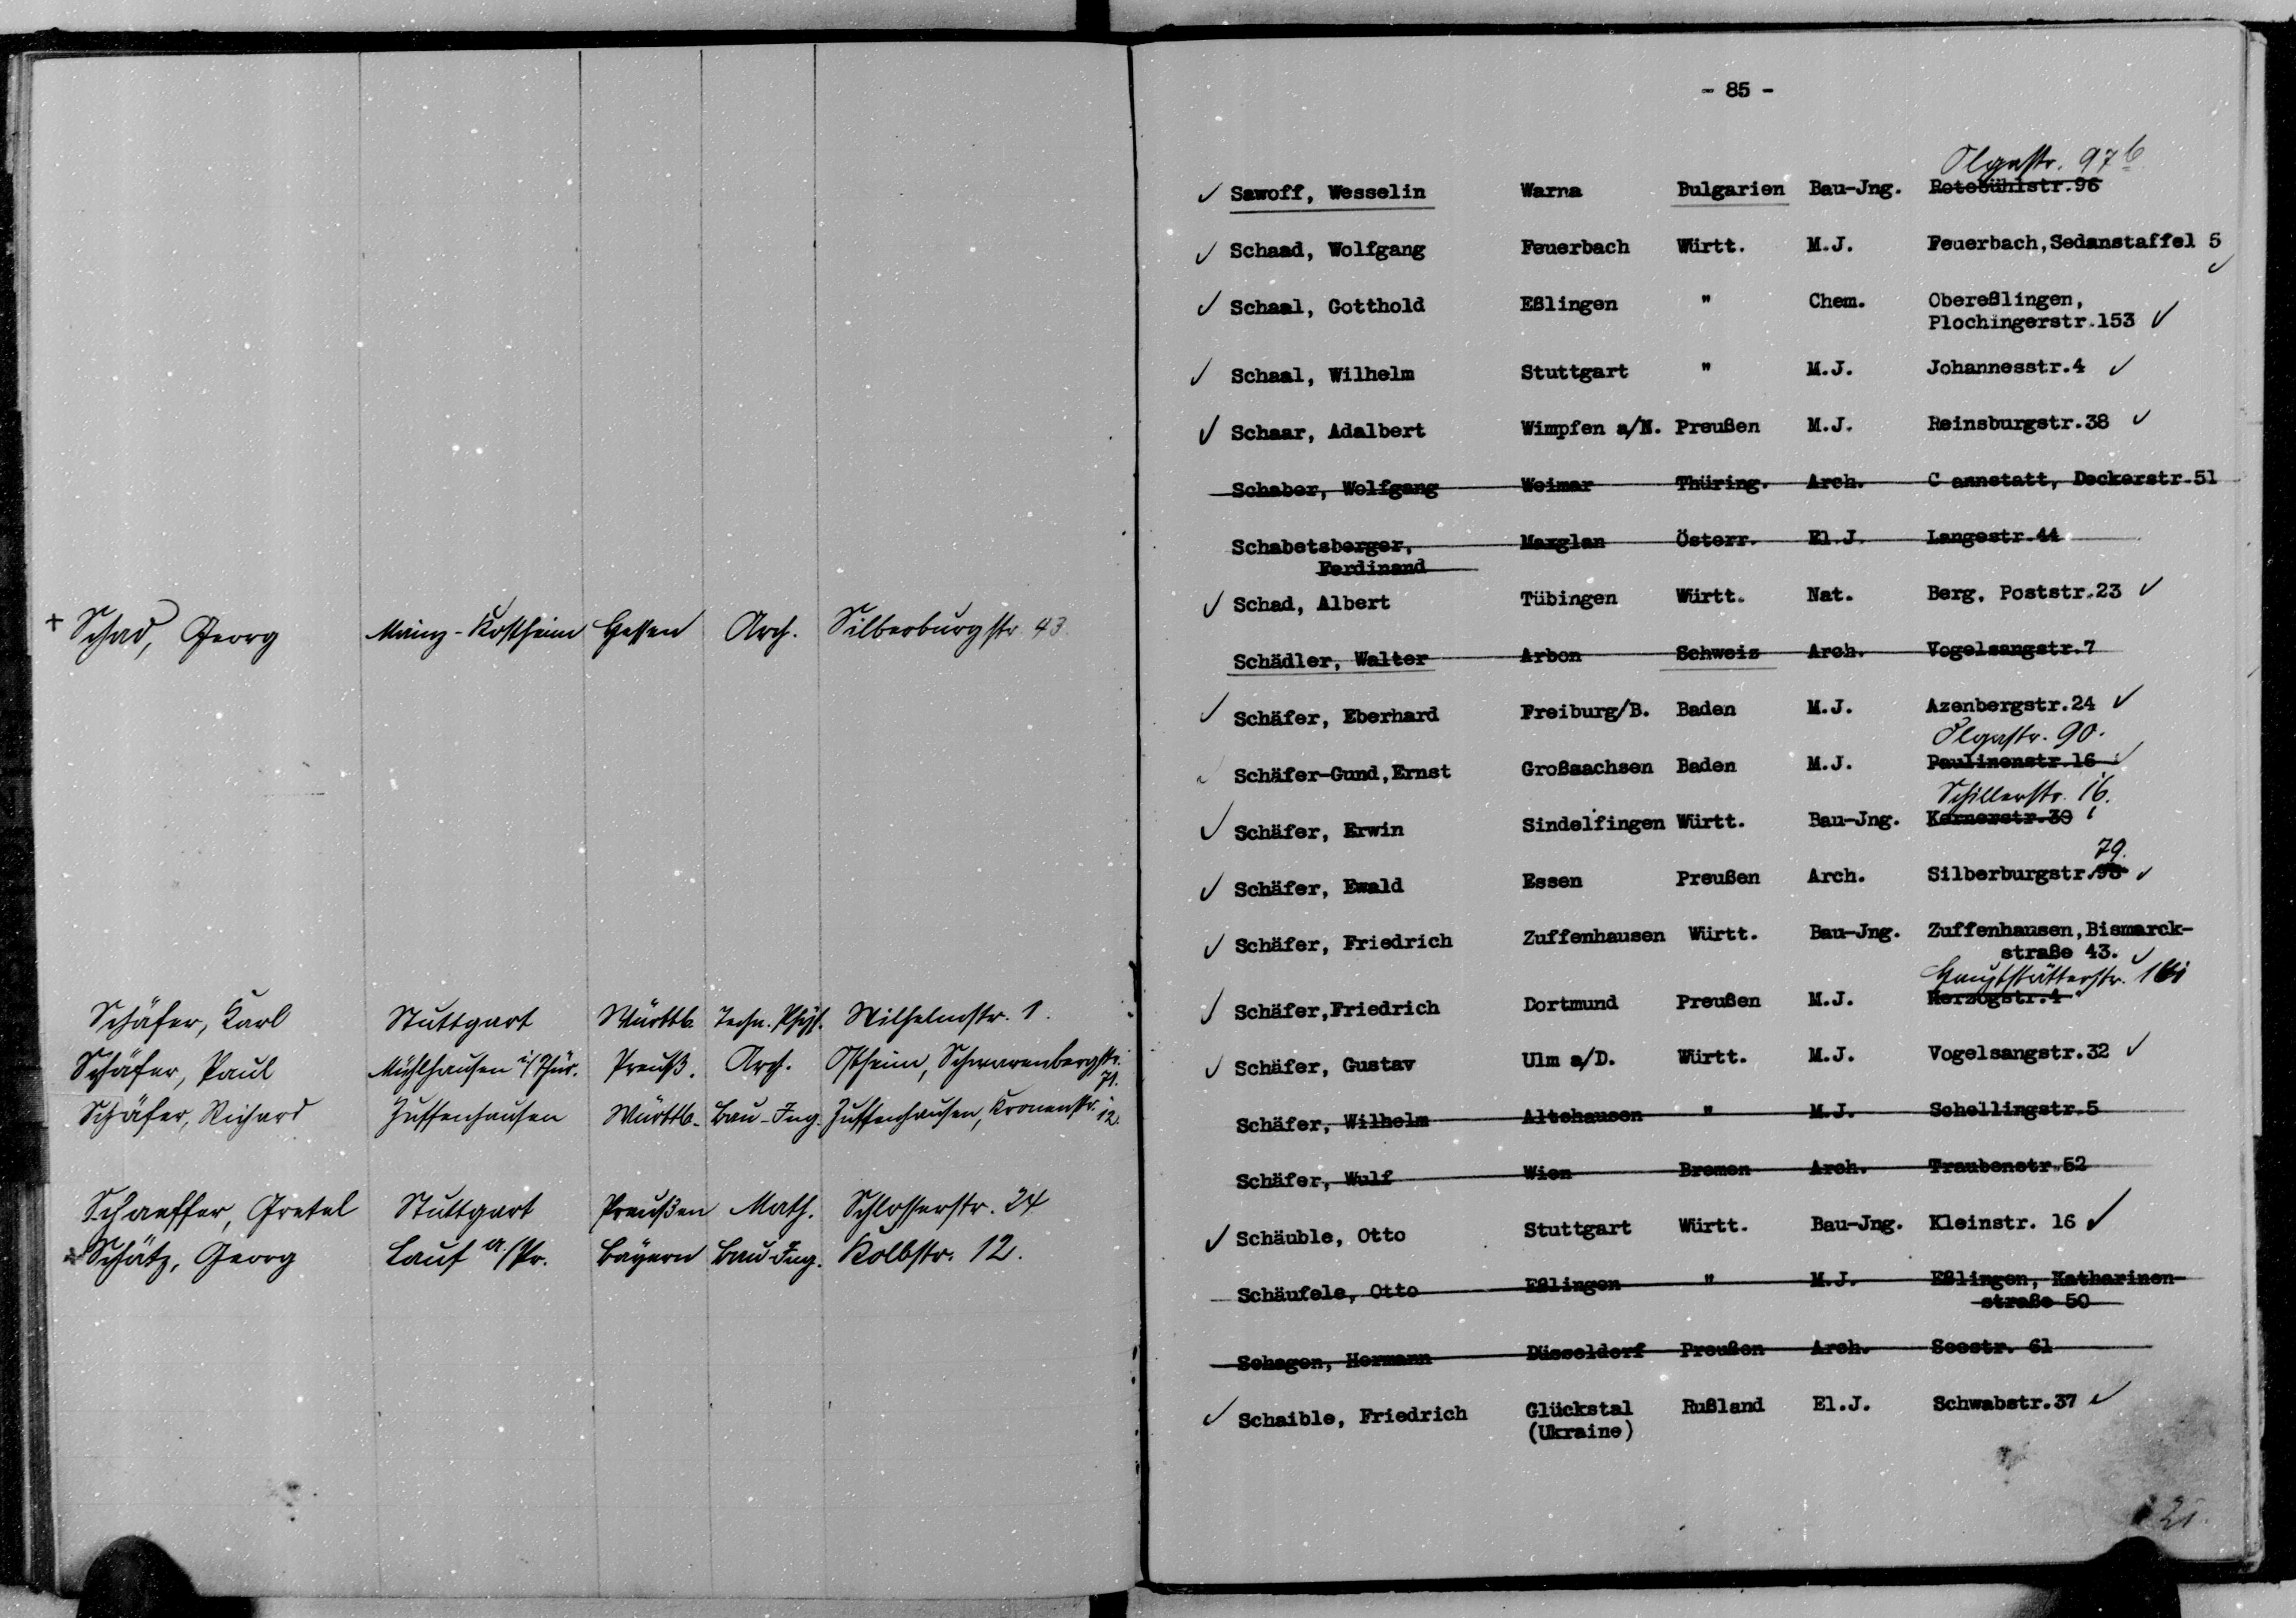 + Schad, Georg Mainz-Kostheim Hessen Arch. Silberburgstr. 43.
Schäfer, Karl Stuttgart Württb. Techn. Phys. Wilhelmstr. 1.
Schäfer, Paul Mühlhausen i/Thür. Preuß. Arch. Ostheim, Schwarenbergstr.
71.
Schäfer, Richard Zuffenhausen Württb. Bau-Ing. Zuffenhausen, Kronenstr.
12.
Schaeffer, Gretel Stuttgart Preußen Math. Schlosserstr. 24
Schätz, Georg Lauf a./P. Bayern Bau-Ing. Kolbstr. 12.
- 85 -
Olgastr. 97 b
✓ Sawoff, Wesselin Warna Bulgarien Bau-Jng. Rotebühlstr.96
✓ Schaad, Wolfgang Feuerbach Württ. M.J. Feuerbach,Sedanstaffel 5 ✓
✓ Schaal, Gotthold Eßlingen " Chem. Obereßlingen,
Plochingerstr.153 ✓
✓ Schaal, Wilhelm Stuttgart " M.J. Johannesstr.4 ✓
✓ Schaar, Adalbert Wimpfen a/N. Preußen M.J. Reinsburgstr.38 ✓
Schaber, Wolfgang Weimar Thüring. Arch. C annstatt, Deckerstr.51
Schabetsberger, Maxglan Österr. El.J. Langestr.44
Ferdinand
✓ Schad, Albert Tübingen Württ. Nat. Berg, Poststr.23 ✓
Schädler, Walter Arbon Schweiz Arch. Vogelsangstr.7
✓ Schäfer, Eberhard Freiburg/B. Baden M.J. Azenbergstr.24 ✓
Olgastr. 90.
✓ Schäfer-Gund,Ernst Großsachsen Baden M.J. Paulinenstr.16 ✓
Schillerstr. 16.
✓ Schäfer, Erwin Sindelfingen Württ. Bau-Jng. Kernerstr.39
79.
✓ Schäfer, Ewald Essen Preußen Arch. Silberburgstr. ✓
✓ Schäfer, Friedrich Zuffenhausen Württ. Bau-Jng. Zuffenhausen,Bismarck-
straße 43. ✓
Hauptstätterstr.
✓ Schäfer,Friedrich Dortmund Preußen M.J. Herzogstr.4
✓ Schäfer, Gustav Ulm a/D. Württ. M.J. Vogelsangstr.32 ✓
Schäfer, Wilhelm Altshausen " M.J. Schellingstr.5
Schäfer, Wulf Wien Bremen Arch. Traubenstr.52
✓ Schäuble, Otto Stuttgart Württ. Bau-Jng. Kleinstr. 16 ✓
Schäufele, Otto Eßlingen " M.J. Eßlingen, Katharinen-
straße 50
Schagen, Hermann Düsseldorf Preußen Arch. Seestr. 61
✓ Schaible, Friedrich Glückstal Rußland El.J. Schwabstr.37 ✓
(Ukraine)